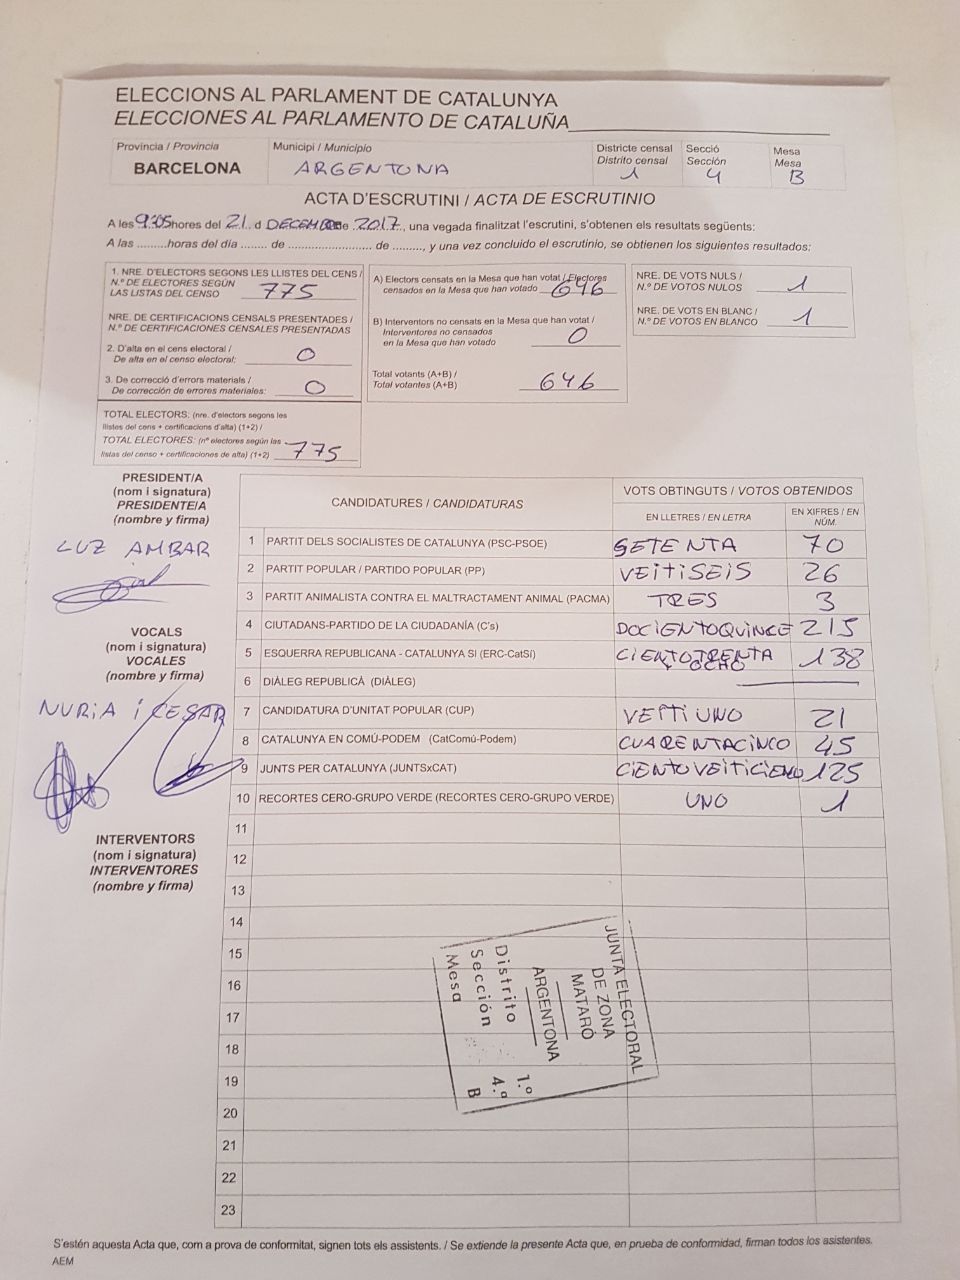 ELECCIONS AL PARLAMENT DE CATALUNYA
ELECCIONES AL PARLAMENTO DE CATALUÑA
Provincia / Provincia
BARCELONA
Municipi / Municipio
ARGENTONA
Districte censal
Distrito censal
1
Secció
Sección
4
Mesa
Mesa
B
ACTA D'ESCRUTINI / ACTA DE ESCRUTINIO
A les 9:05 hores del 21 d DECEMBRE de 2017, una vegada finalitzat l'escrutini, s'obtenen els resultats següents:
A las .........horas del día ........ de ............................ de ........, y una vez concluido el escrutinio, se obtienen los siguientes resultados:
1. NRE. D'ELECTORS SEGONS LES LLISTES DEL CENS /
N.º DE ELECTORES SEGÚN
LAS LISTAS DEL CENSO 775
NRE. DE CERTIFICACIONS CENSALS PRESENTADES /
N.º DE CERTIFICACIONES CENSALES PRESENTADAS
2. D'alta en el cens electoral /
De alta en el censo electoral: 0
3. De correcció d'errors materials /
De corrección de errores materiales: 0
TOTAL ELECTORS: (nre. d'electors segons les
llistes del cens + certificacions d'alta) (1+2) /
TOTAL ELECTORES: (nº electores según las
listas del censo + certificaciones de alta) (1+2) 775
A) Electors censats en la Mesa que han votat / Electores
censados en la Mesa que han votado 646
B) Interventors no censats en la Mesa que han votat /
Interventores no censados
en la Mesa que han votado 0
Total votants (A+B) /
Total votantes (A+B) 646
NRE. DE VOTS NULS /
N.º DE VOTOS NULOS 1
NRE. DE VOTS EN BLANC /
N.º DE VOTOS EN BLANCO 1
PRESIDENT/A
(nom i signatura)
PRESIDENTE/A
(nombre y firma)
LUZ AMBAR
VOCALS
(nom i signatura)
VOCALES
(nombre y firma)
NURIA i CESAR
INTERVENTORS
(nom i signatura)
INTERVENTORES
(nombre y firma)
CANDIDATURES / CANDIDATURAS
VOTS OBTINGUTS / VOTOS OBTENIDOS
EN LLETRES / EN LETRA
EN XIFRES / EN
NÚM.
1 PARTIT DELS SOCIALISTES DE CATALUNYA (PSC-PSOE) SETENTA 70
2 PARTIT POPULAR / PARTIDO POPULAR (PP) VEITISEIS 26
3 PARTIT ANIMALISTA CONTRA EL MALTRACTAMENT ANIMAL (PACMA) TRES 3
4 CIUTADANS-PARTIDO DE LA CIUDADANÍA (C's) DOCIENTOQUINCE 215
5 ESQUERRA REPUBLICANA - CATALUNYA SÍ (ERC-CatSí) CIENTOTRENTA Y OCHO 138
6 DIÀLEG REPUBLICÀ (DIÀLEG)
7 CANDIDATURA D'UNITAT POPULAR (CUP) VEITIUNO 21
8 CATALUNYA EN COMÚ-PODEM (CatComú-Podem) CUARENTACINCO 45
9 JUNTS PER CATALUNYA (JUNTSxCAT) 125
10 RECORTES CERO-GRUPO VERDE (RECORTES CERO-GRUPO VERDE) UNO 1
11
12
13
14
15
16
17
18
19
20
21
22
23
JUNTA ELECTORAL
DE ZONA
MATARÓ
ARGENTONA
Distrito 1.º
Sección 4.ª
Mesa B
S'estén aquesta Acta que, com a prova de conformitat, signen tots els assistents. / Se extiende la presente Acta que, en prueba de conformidad, firman todos los asistentes.
AEM